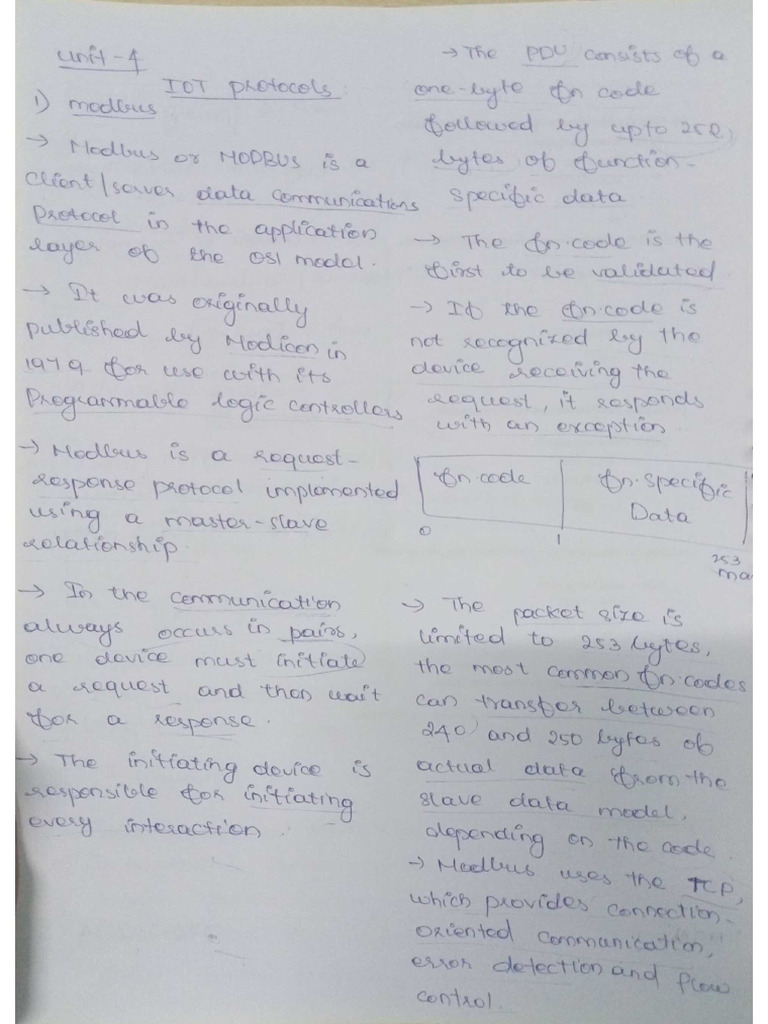 Unit-4
IOT protocols:
1) modbus
→ Modbus or MODBUS is a
client/server data communications
Protocol in the application
layer of the OSI model.
→ It was originally
published by Modicon in
1979 for use with its
Programmable logic controllers
→ Modbus is a request-
response protocol implemented
using a master-slave
relationship.
→ In the communication
always occurs in pairs,
one device must initiate
a request and then wait
for a response.
→ The initiating device is
responsible for initiating
every interaction.
→ The PDU consists of a
one-byte fn code
followed by upto 252,
bytes of function-
specific data
→ The fn.code is the
first to be validated
→ If the fn.code is
not recognized by the
device receiving the
request, it responds
with an exception.
fn.code
fn.specific
Data
0
1
253
ma
→ The packet size is
limited to 253 bytes,
the most common fn.codes
can transfer between
240 and 250 bytes of
actual data from the
slave data model,
depending on the code.
→ Modbus uses the TCP,
which provides connection-
oriented communication,
error detection and flow
control.